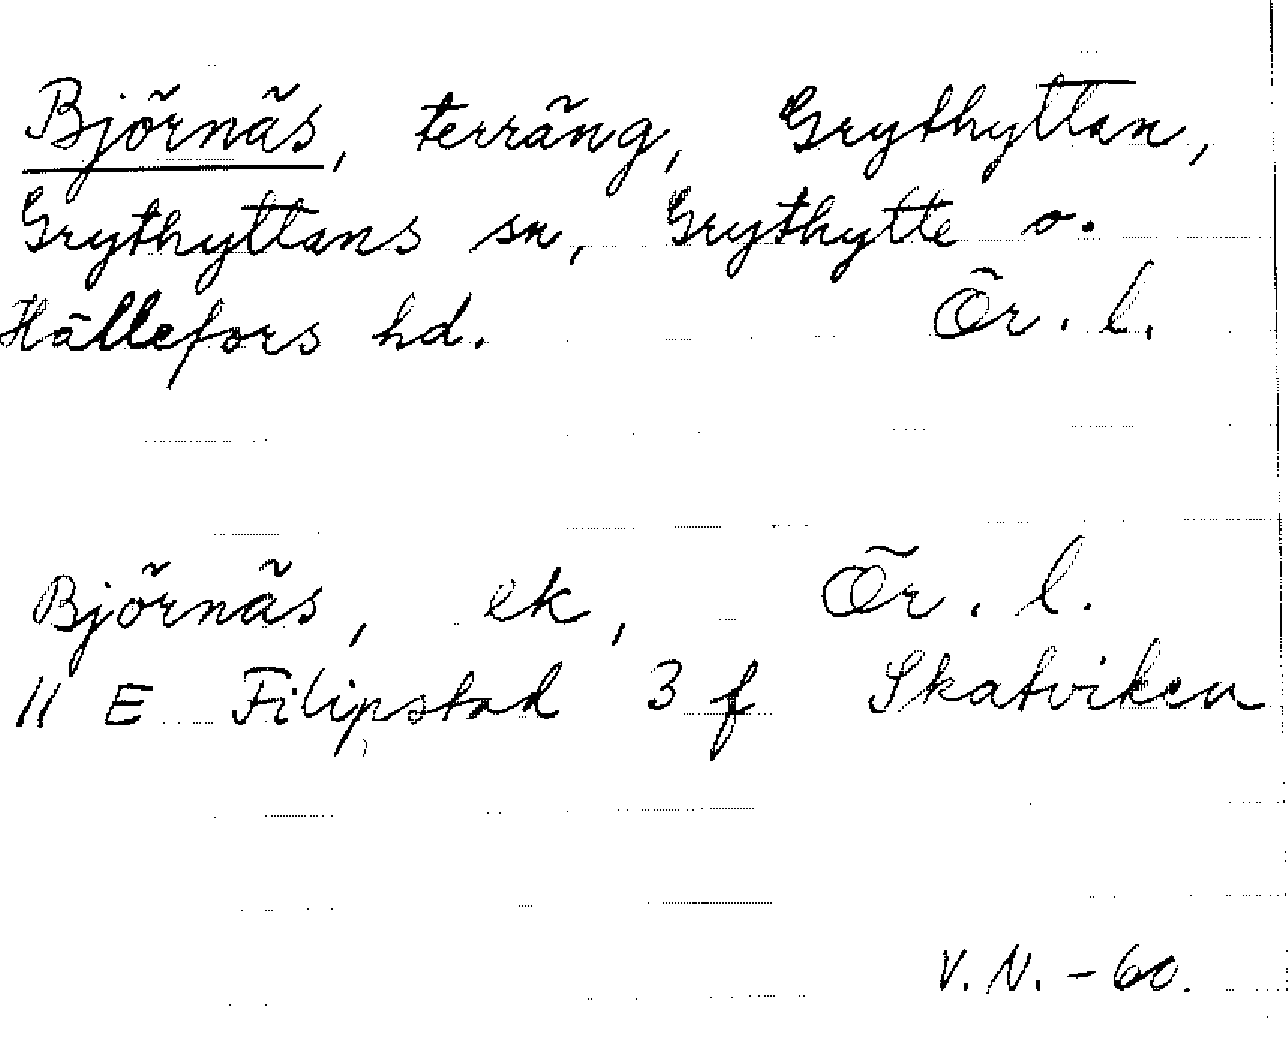 Björnäs, terräng, Grythyttan,
Grythyttans sn, Grythytte o.
Hällefors hd. Ör. l.
Björnäs, ek, Ör. l.
11 E Filipstad 3 f Skatviken
V. N. - 60.